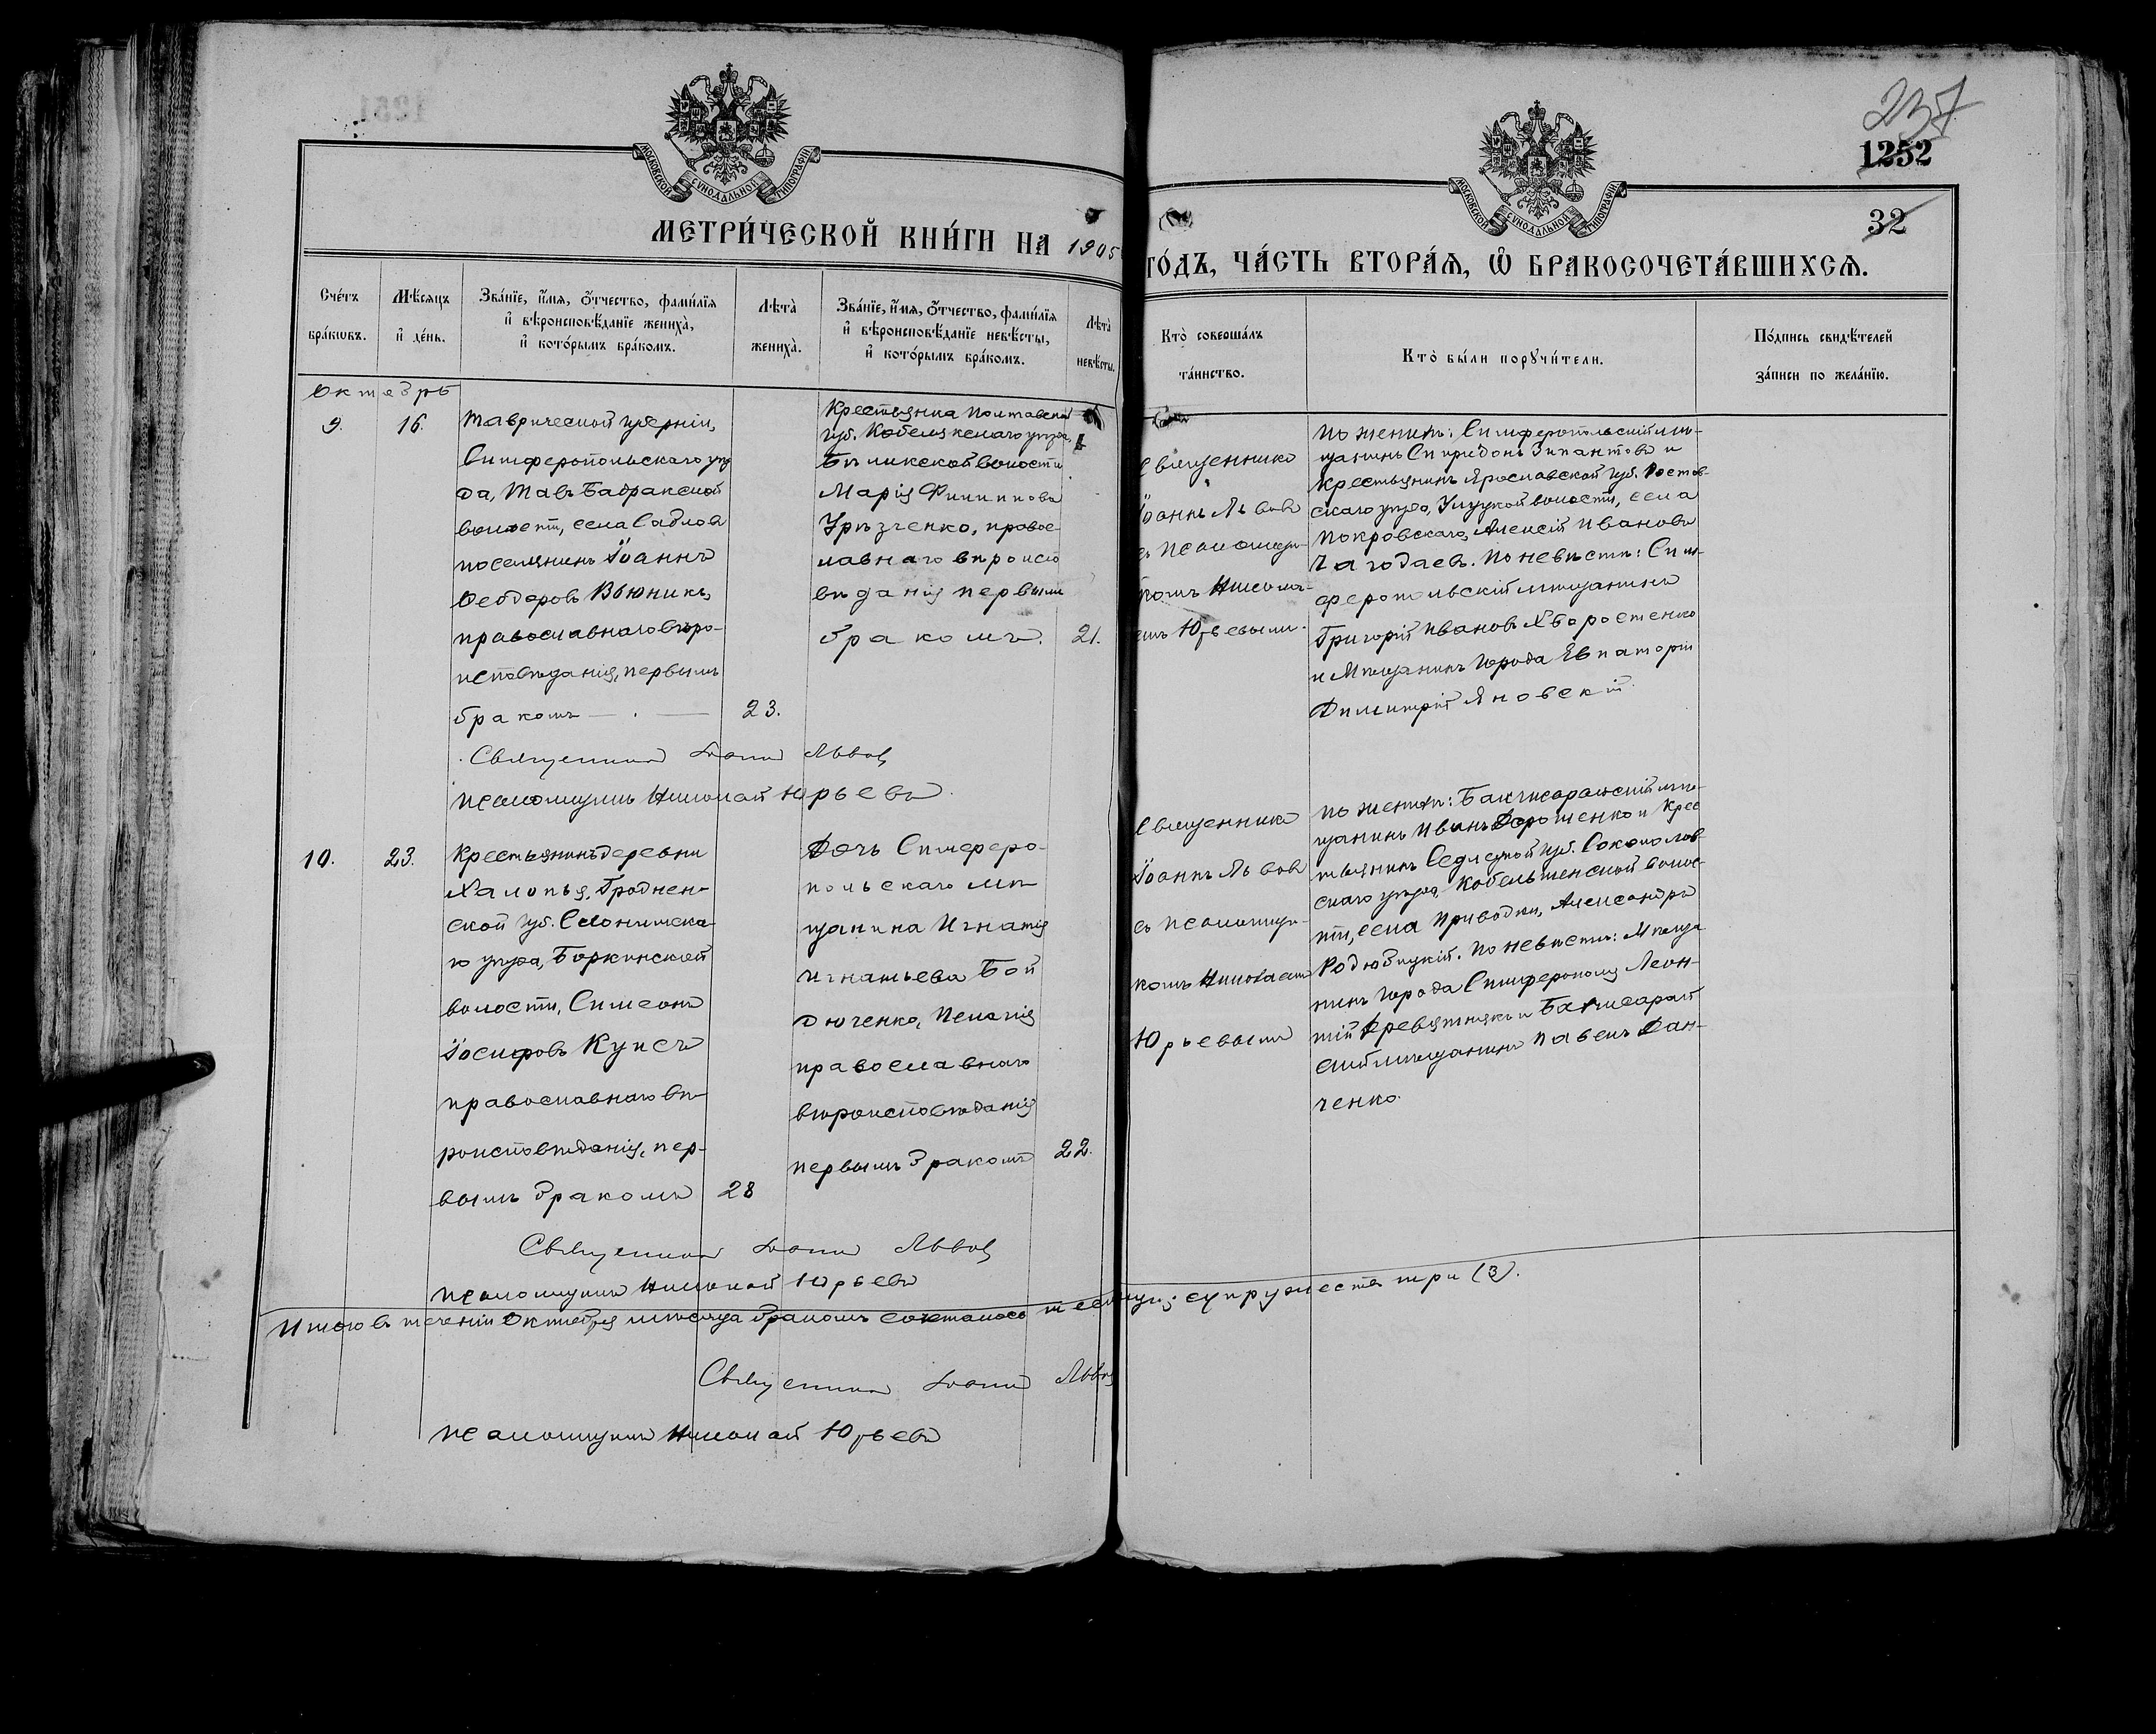 237
1252
32
МОСКОВСКОЙ СѴНОДАЛЬНОЙ ТИПОГРАФІИ
МОСКОВСКОЙ СѴНОДАЛЬНОЙ ТИПОГРАФІИ
МЕТРИ́ЧЕСКОЙ КНИ́ГИ НА 1905
ГО́ДЪ, ЧА́СТЬ ВТОРА́Ѧ, Ѡ҆ БРАКОСОЧЕТА́ВШИХСѦ.
Сче́тъ
бра́кѡвъ.
Мѣ́сяцъ
и҆ де́нь.
Зва́нїе, и҆́мя, ѻ҆́тчество, фами́лїя
и҆ вѣроисповѣ́данїе жениха̀,
и҆ кото́рымъ бра́комъ.
Лѣта̀
жениха̀.
Зва́нїе, и҆́мя, ѻ҆́тчество, фами́лїя
и҆ вѣроисповѣ́данїе невѣ́сты,
и҆ кото́рымъ бра́комъ.
Лѣта̀
невѣ́сты.
Кто̀ соверша́лъ
та́инство.
Кто̀ бы́ли порꙋчи́тели.
По́дпись свидѣ́телей
за́писи по жела́нїю.
Октябрь
9.
16.
Таврической губерніи,
Симферопольскаго уѣз
да, Тавъ Бадракской
волости, села Саблов
поселянинъ Іоаннъ
Ѳеодоровъ Вьюникъ,
православнаго вѣро-
исповѣданія, первымъ
бракомъ — . —
23.
Крестьянка Полтавской
губ. Кобелякскаго уѣзда,
Бѣликской волости
Марія Филиппова
православнаго вѣроиспо
вѣданія первымъ
бракомъ.
21.
Священникъ
Іоаннъ Львовъ
съ псаломщи-
комъ Никола-
емъ Юрьевымъ.
По женихѣ: Симферопольскій мѣ-
щанинъ Спиридонъ и
крестьянинъ Ярославской губ. Ростов-
скаго уѣзда, волости, села
Покровскаго, Алексѣй Ивановъ
Чагодаевъ. По невѣстѣ: Сим-
феропольскій мѣщанинъ
Григорій Ивановъ Хворостенко
и мѣщанинъ города Евпаторіи
Димитрій Яновскій.
Священникъ Іоаннъ Львовъ
псаломщикъ Николай Юрьевъ.
10.
23.
Крестьянинъ деревни
Халопья, Гроднен-
ской губ. Слонимска-
го уѣзда, Боркинской
волости, Симеонъ
Іосифовъ Купсъ
православнаго вѣ-
роисповѣданія, пер-
вымъ бракомъ
28
Дочь Симферо-
польскаго мѣ-
щанина Игнатія
Игнатьева Бой
дюченко, Пелагія
православнаго
вѣроисповѣданія
первымъ бракомъ
22.
Священникъ
Іоаннъ Львовъ
съ псаломщи-
комъ Николаемъ
Юрьевымъ
По женихѣ: Бахчисарайскій мѣ-
щанинъ Иванъ Дорошенко и крес
тьянинъ Седлецкой губ. Соколов-
скаго уѣзда, волос-
ти, села Александръ
По невѣстѣ: Мѣща
нинъ города Симферополя Леон-
тій Древятнякъ и Бахчисарай
скій мѣщанинъ Павелъ Дан-
ченко.
Священникъ Іоаннъ Львовъ
псаломщикъ Николай Юрьевъ
Итого въ теченіи Октября мѣсяца бракомъ сочеталось супружества три (3).
Священникъ Іоаннъ Львовъ
псаломщикъ Николай Юрьевъ